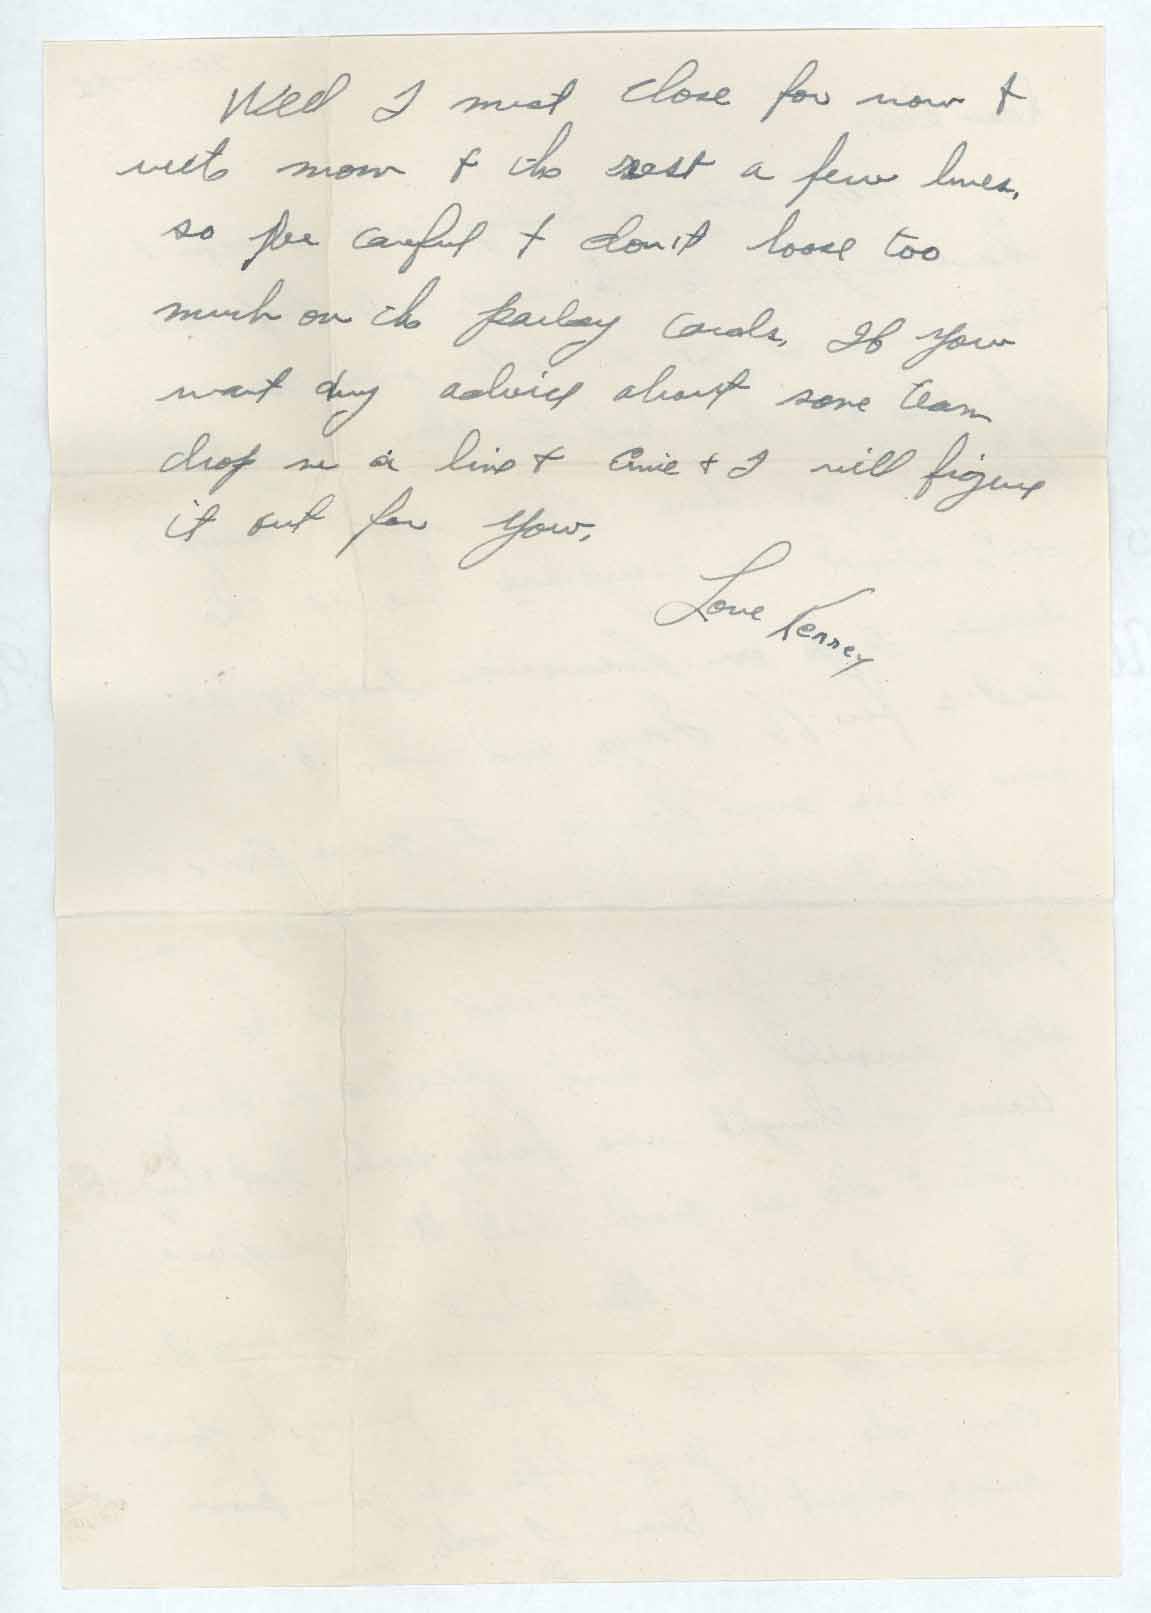 Well I must close for now &
write mom & the rest a few lines,
so be careful & don't loose too
much on the parley cards. If you
want any advice about some team
drop me a line & Ernie & I will figure
it out for you.
Love Kenney